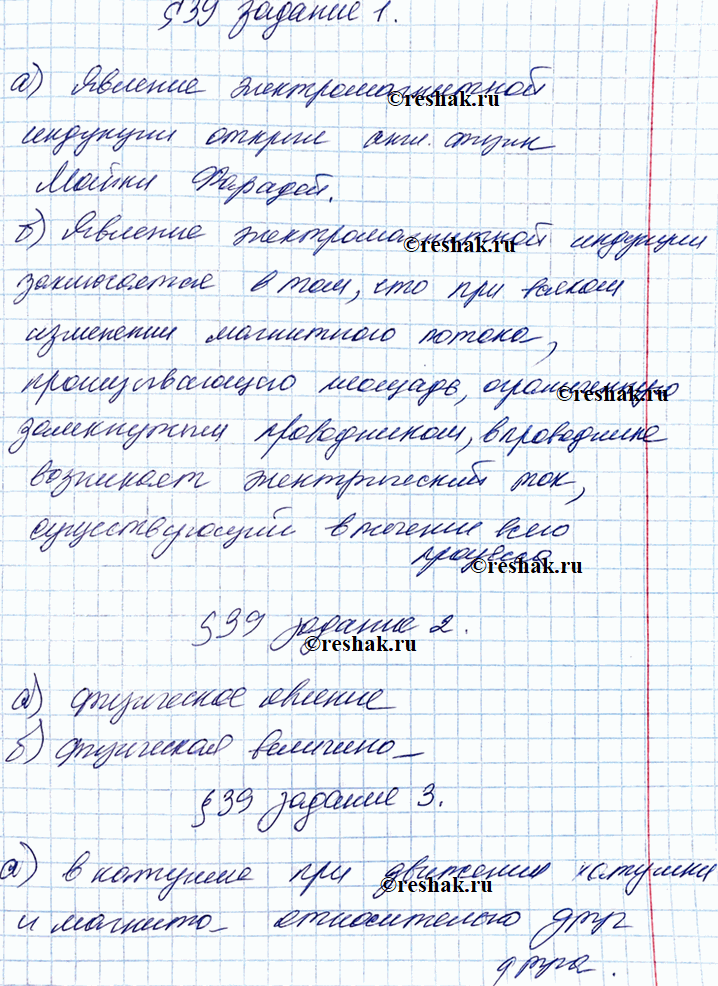 §39 задание 1.
а) Явление электромагнитной
©reshak.ru
индукции открыл англ. физик
Майкл Фарадей.
б) Явление электромагнитной индукции
©reshak.ru
заключается в том, что при всяком
изменении магнитного потока,
пронизывающего площадь, ограниченную
©reshak.ru
замкнутым проводником, в проводнике
возникает электрический ток,
существующий в течение всего
процесса
©reshak.ru
§39 задание 2.
©reshak.ru
а) физическое явление
б) физическая величина
§39 задание 3.
а) в катушке при движении катушки
©reshak.ru
и магнита относительно друг
друга.